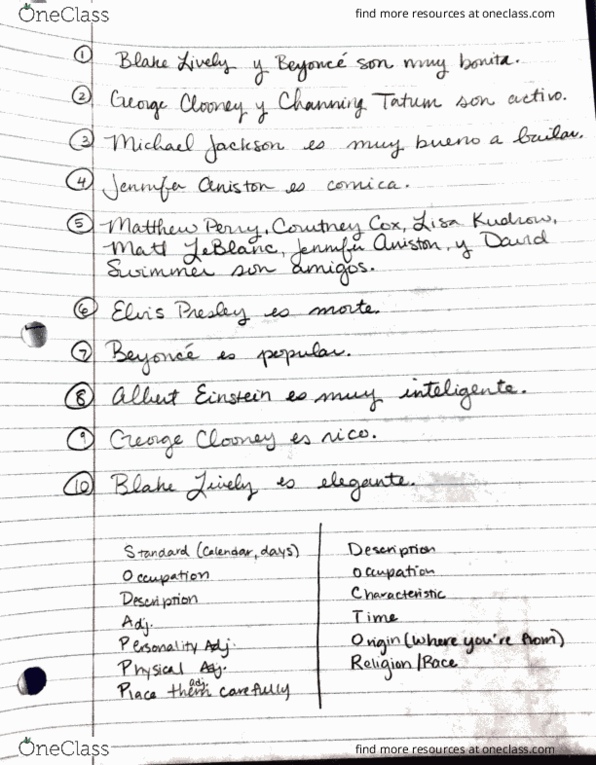 OneClass
find more resources at oneclass.com
① Blake Lively y Beyoncé son muy bonita.
② George Clooney y Channing Tatum son activo.
③ Michael Jackson es muy bueno a bailar.
④ Jennifer Aniston es comica.
⑤ Matthew Perry, Courtney Cox, Lisa Kudrow,
Matt LeBlanc, Jennifer Aniston, y David
Swimmer son amigos.
⑥ Elvis Presley es morte.
⑦ Beyoncé es popular.
⑧ Albert Einstein es muy inteligente.
⑨ George Clooney es rico.
⑩ Blake Lively es elegante.
Standard (Calendar, days)
Occupation
Description
Adj.
Personality Adj.
Physical Adj.
Place them adj. carefully
Description
Occupation
Characteristic
Time
Origin (where you're from)
Religion/Race
OneClass
find more resources at oneclass.com